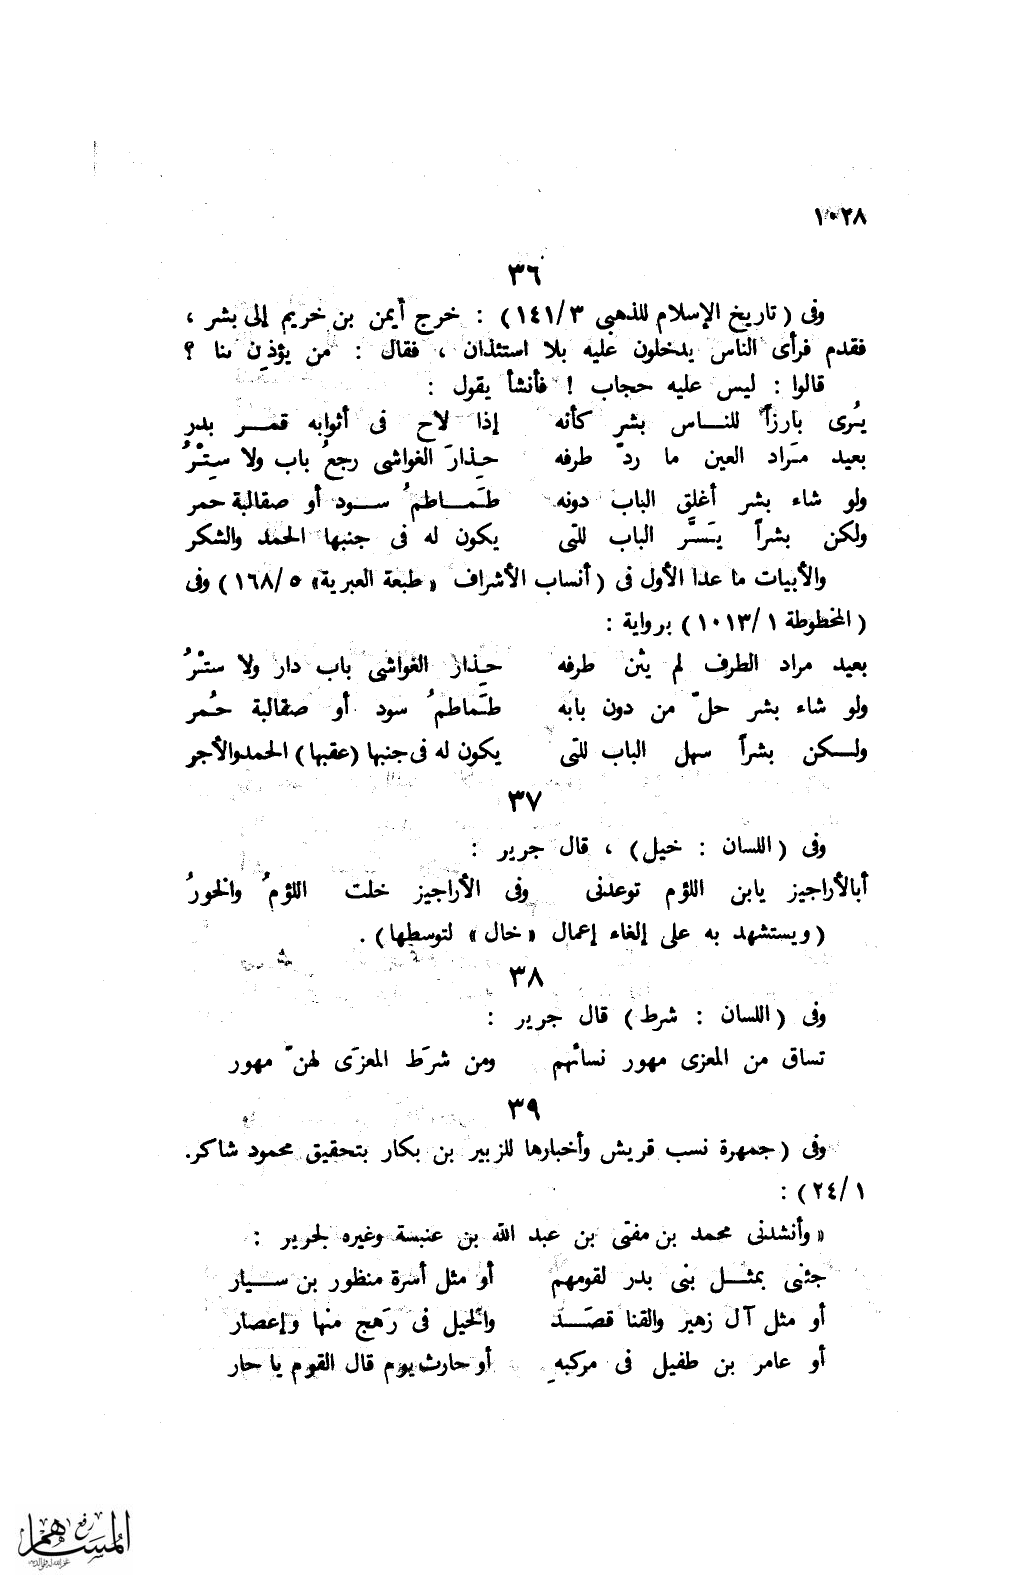 ١٠٢٨
٣٦
وفى ( تاريخ الإسلام للذهبى ١٤١/٣ ) : خرج أيمن بن خريم إلى بشر ،
فقدم فرأى الناس يدخلون عليه بلا استئذان ، فقال : من يؤذن بنا ؟
قالوا : ليس عليه حجاب ! فأنشأ يقول :
يُرى بارزاً للنـــاس بشر كأنه إذا لاح فى أثوابه قمـــر بدر
بعيد مَراد العين ما ردّ طرفه حِذارَ الغواشى رجعُ باب ولا سِتْرُ
ولو شاء بشر أغلق الباب دونه طَمـــاطمُ ســـود أو صقالبة حمر
ولكن بشراً يَسَّر الباب للتى يكون له فى جنبها الحمد والشكر
والأبيات ما عدا الأول فى ( أنساب الأشراف « طبعة العبرية» ١٦٨/٥ ) وفى
( المخطوطة ١٠١٣/١ ) برواية :
بعيد مراد الطرف لم يثن طرفه حِذار الغواشى باب دار ولا ستْرُ
ولو شاء بشر حلّ من دون بابه طَماطمُ سود أو صقالبة حُمر
ولــكن بشراً سهل الباب للتى يكون له فى جنبها (عقبها) الحمد والأجر
٣٧
وفى ( اللسان : خيل ) ، قال جرير :
أبالأراجيز يابن اللؤم توعدنى وفى الأراجيز خلت اللؤمُ والخورُ
( ويستشهد به على إلغاء إعمال « خال » لتوسطها ) .
٣٨
وفى ( اللسان : شرط ) قال جرير :
تساق من المعزى مهور نسائهم ومن شرَط المعزَى لهنّ مهور
٣٩
وفى ( جمهرة نسب قريش وأخبارها للزبير بن بكار بتحقيق محمود شاكر.
٢٤/١ ) :
« وأنشدنى محمد بن مفتى بن عبد الله بن عنبسة وغيره لجرير :
جئنى بمثــل بنى بدر لقومهم أو مثل أسرة منظور بن ســـيار
أو مثل آل زهير والقنا قصَـــد والخيل فى رَهج منها وإعصار
أو عامر بن طفيل فى مركبهِ أو حارث يوم قال القوم يا حار
رفع
المساهم